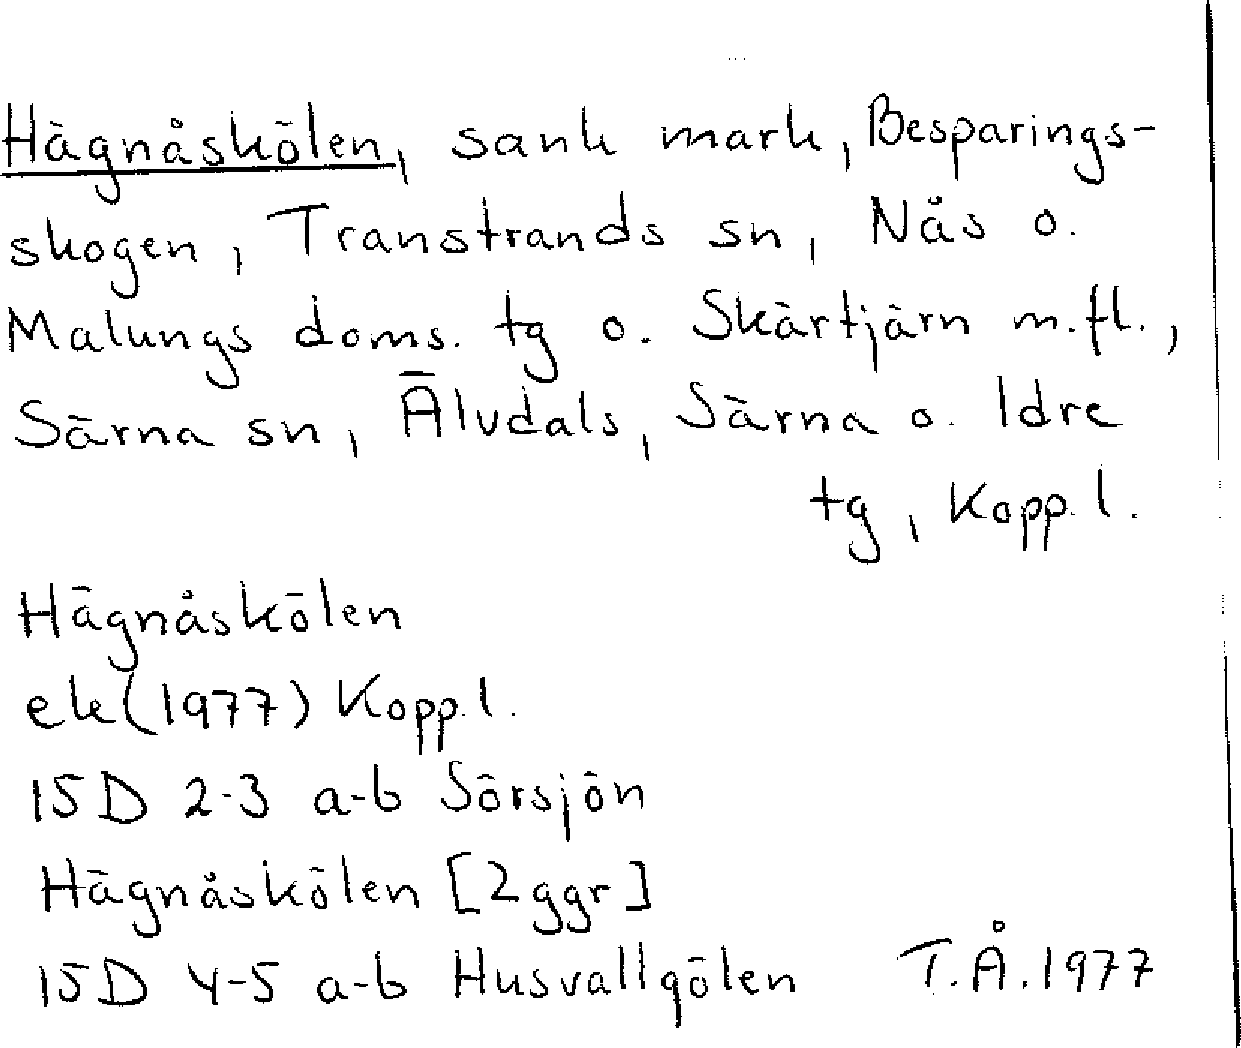 Hägnåskölen, sank mark, Besparings-
skogen, Transtrands sn, Nås o.
Malungs doms. tg o. Skärtjärn m.fl.,
Särna sn, Älvdals, Särna o. Idre
tg, Kopp. l.
Hägnåskölen
ek (1977) Kopp. l.
15D 2-3 a-b Sörsjön
Hägnåskölen [2 ggr]
15D 4-5 a-b Husvallgölen T.Å. 1977